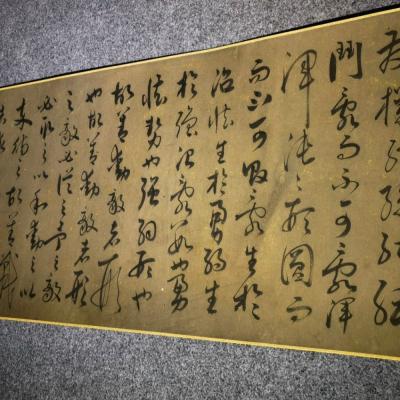 發機紛紛紜紜
鬥亂而不可亂渾
渾沌沌形圓而
而不可敗亂生於
治怯生於勇弱生
於強治亂數也勇
怯勢也強弱形也
故善動敵者形
也故善動敵者形
之敵必從之予之敵
必取之以利動之以
待之故善戰